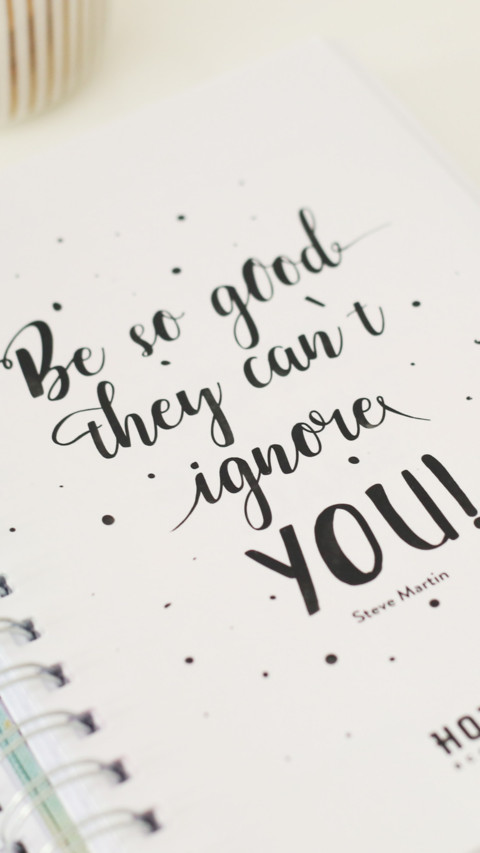 Be so good
they can`t
ignore
YOU!
Steve Martin